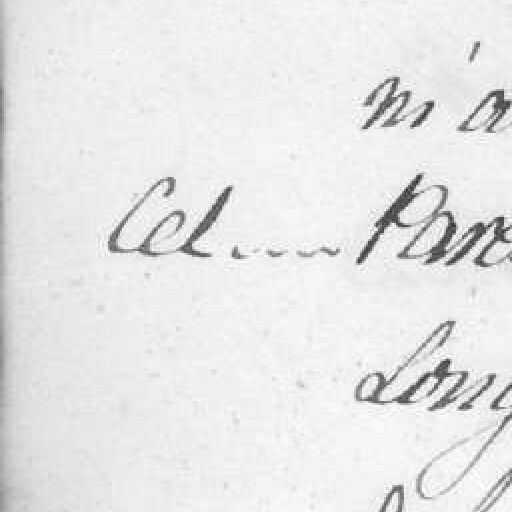 m'a
Cel.... Pare
Long